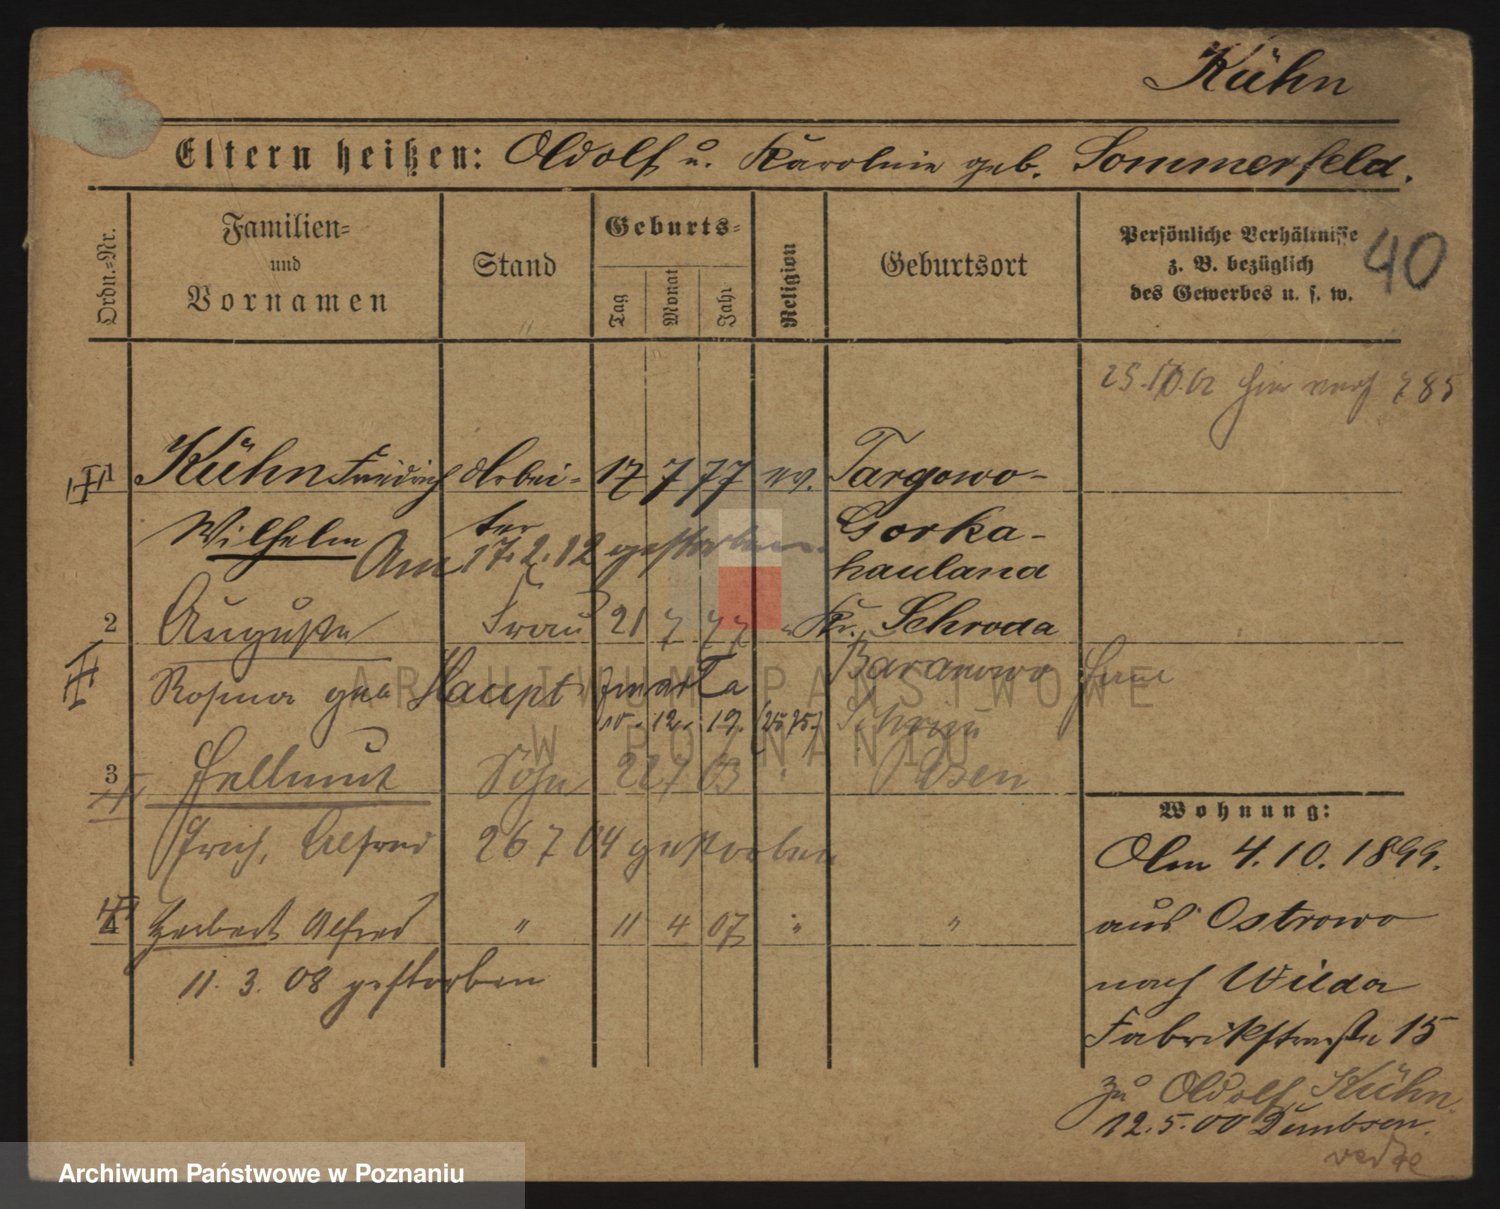 Kühn
40
Eltern heißen: Adolf u. Karoline geb. Sommerfeld.
Ordn.=Nr.
Familien=
und
Vornamen
Stand
Geburts=
Tag Monat Jahr
Religion
Geburtsort
Persönliche Verhältnisse
z. B. bezüglich
des Gewerbes u. s. w.
785
1 Kühn Friedrich Arbei= 17 7 77 ev. Targowo-
Wilhelm ter Gorka-
Am 17.2.12 gestorben. hauland
2 Auguste Frau 21 7 77 " Kr. Schroda
Rosina geb Haupt Baranowo
15. 12. 19.
3 Hellmut Sohn 22 7 03 " Posen
Erich, Alfred 26 7 04 gestorben
4 Herbert Alfred " 11 4 07 " "
11. 3. 08 gestorben
Wohnung:
Am 4.10.1899.
aus Ostrowo
nach Wilda
Fabrikstraße 15
zu Adolf Kühn.
12.5.00
ARCHIWUM PAŃSTWOWE
W POZNANIU
Archiwum Państwowe w Poznaniu